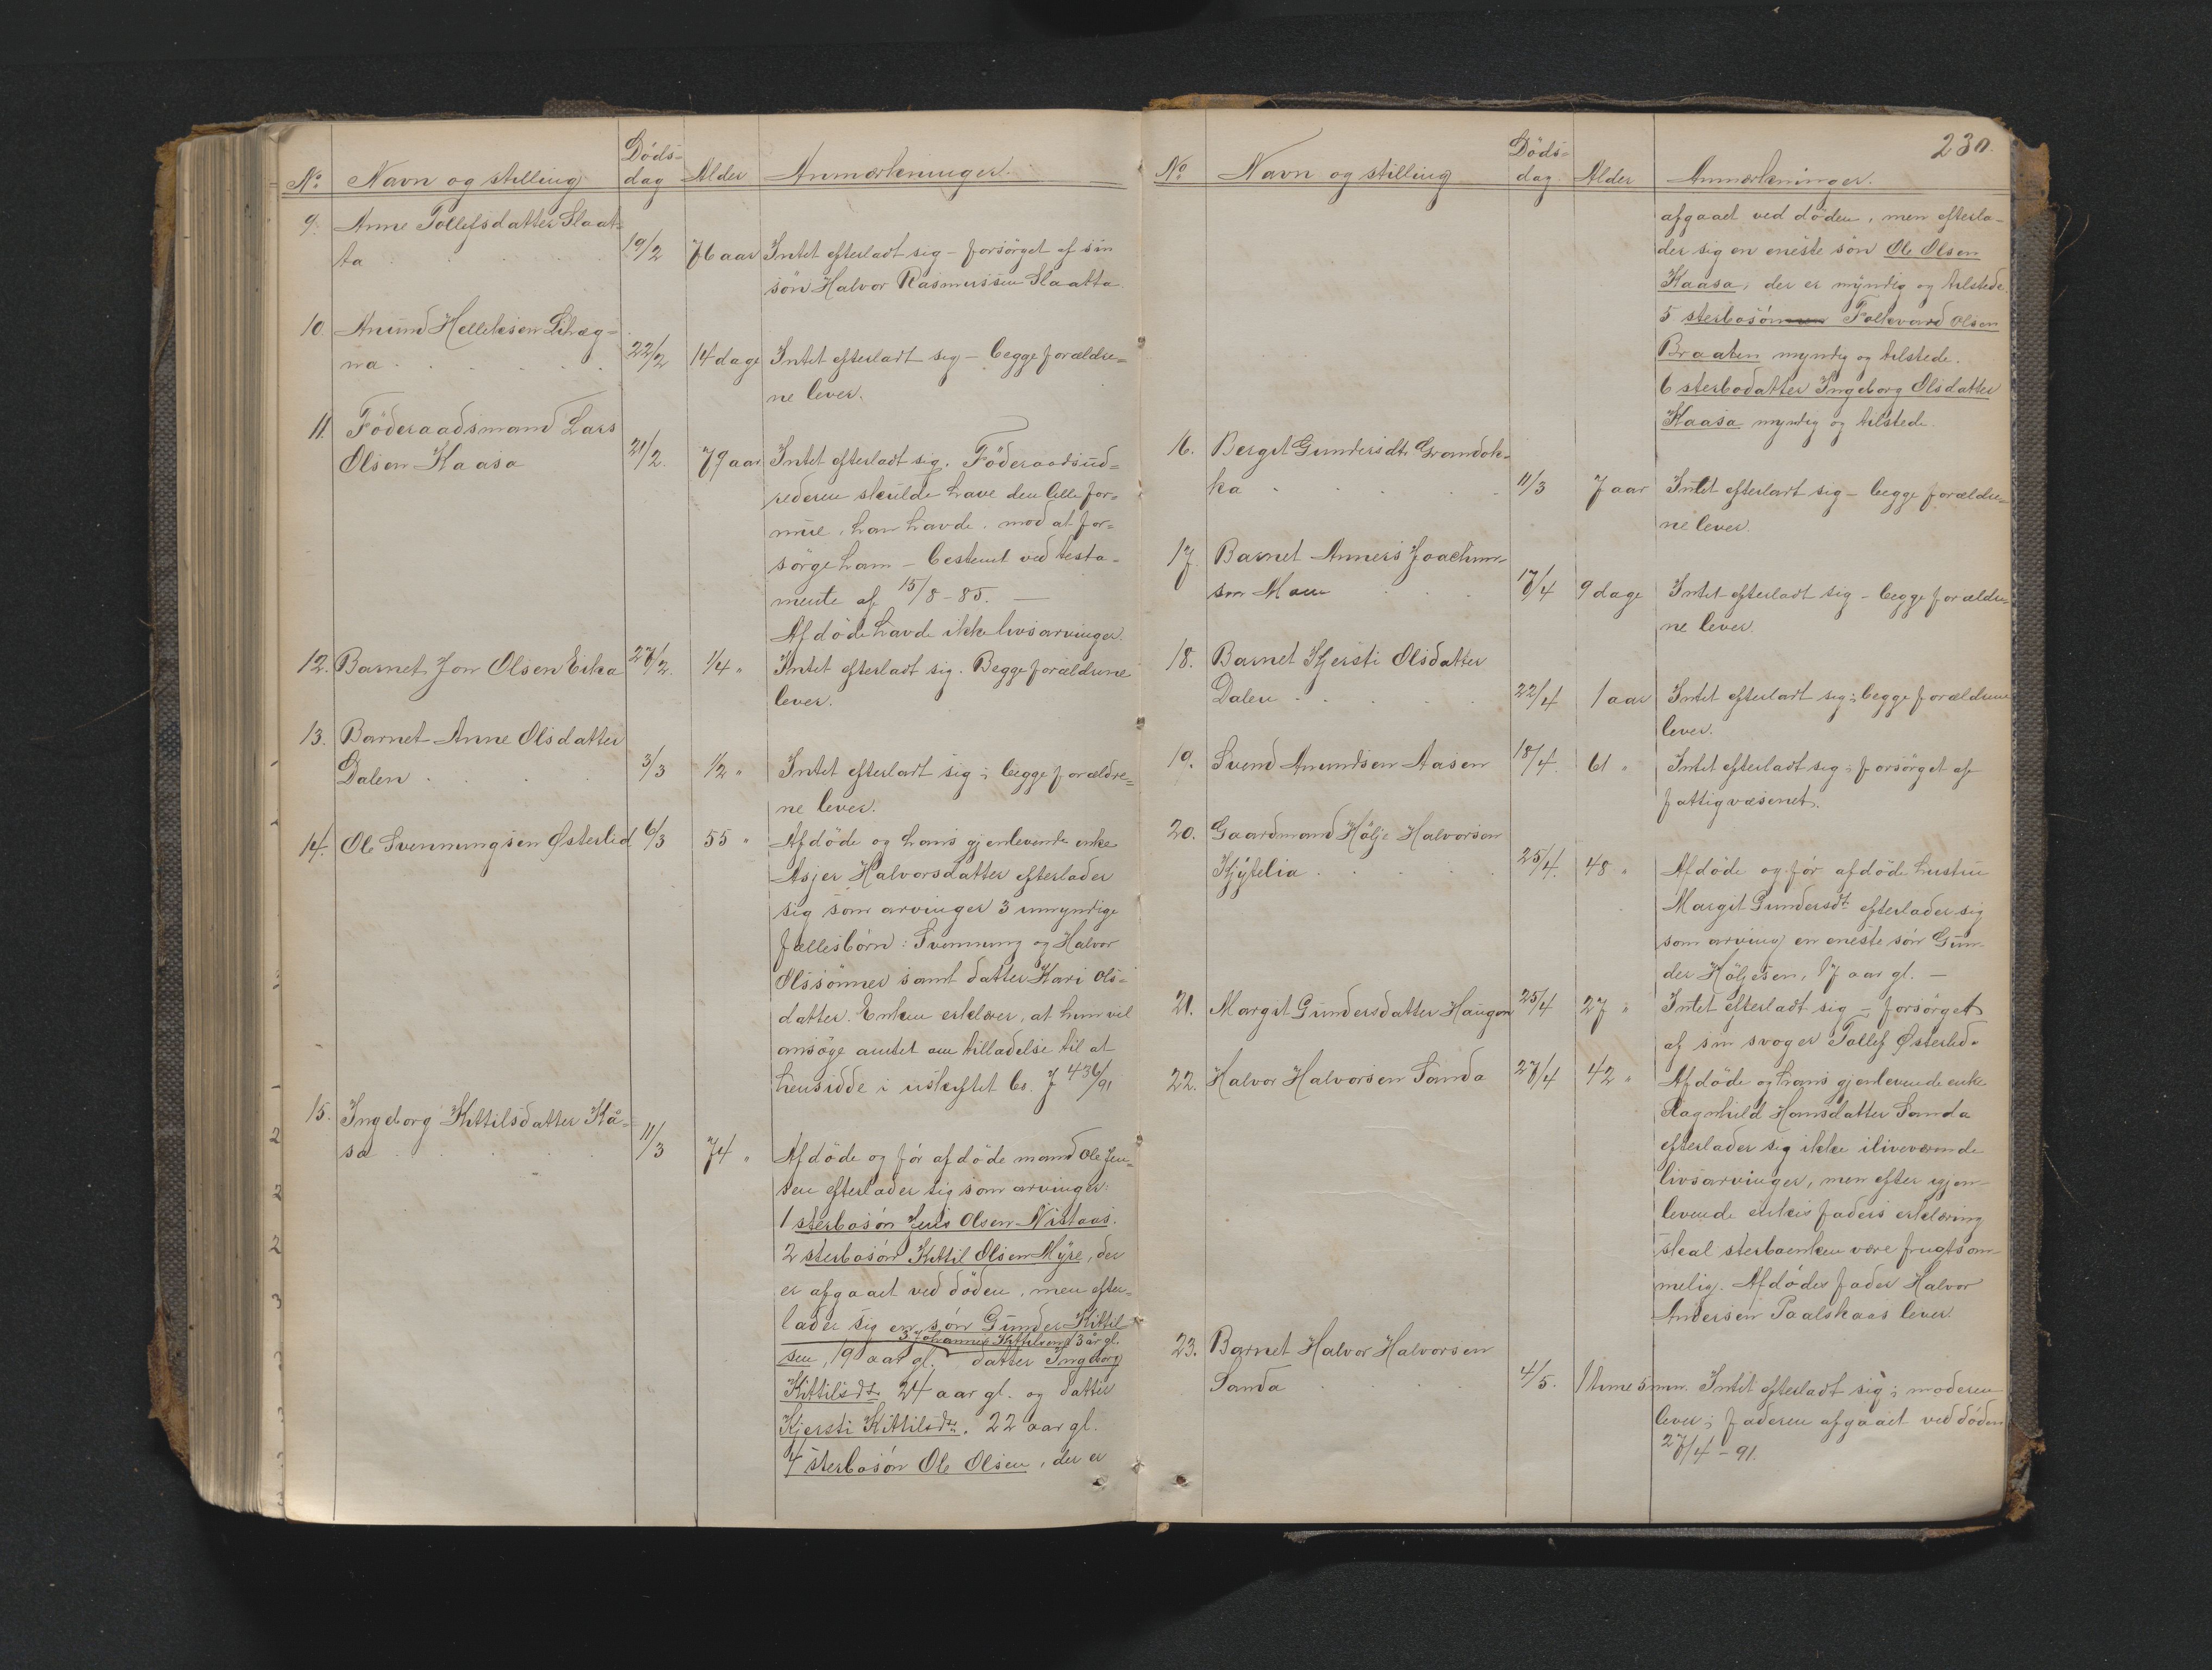 No Navn og stilling Döds- dag Alder Anmærkninger.
9. Anne Tollefsdatter Slaat-
ta 19/2 76 aar Intet efterladt sig - forsörget af sin
sön Halvor Rasmussen Slaatta
10. Anund Helliksen
na 22/2 14 dage Intet efterladt sig - begge forældre-
ne lever.
11. Föderaadsmand Lars
Olsen Kaasa 21/2. 79 aar Intet efterladt sig. Föderaadsud-
rederen skulde have den lille for-
mue, han havde, mod at for-
sörge ham - bestemt ved testa-
mente af 15/8-85. —
Afdöde havde ikke livsarvinger.
12. Barnet Jon Olsen Eika 27/2. 1/4 " Intet efterladt sig. Begge forældrene
lever.
13. Barnet Anne Olsdatter
Dalen 3/3 1/2 " Intet efterladt sig; begge forældre-
ne lever.
14. Ole Svenningsen Østerlid 6/3 55 " Afdöde og hans gjenlevende enke
Asjer Halvorsdatter efterlader
sig som arvinger 3 umyndige
fællesbörn: Svenning og Halvor
Olssönner samt datter Kari Ols-
datter. Enken erklærer, at hun vil
ansöge amtet om tilladelse til at
hensidde i uskiftet bo. J 436/91
15. Ingeborg Kittilsdatter Kå-
sa 11/3 74 " Afdöde og för afdöde mand Ole Jen-
sen efterlader sig som arvinger:
1 sterbosön Jens Olsen Nistaas.
2 sterbosön Kittil Olsen Myre, der
er afgaaet ved döden, men efter-
lader sig en sön Gunder Kittil-
3 Johannes Kittilsen 13 år gl.
sen, 19 aar gl. datter Ingeborg
Kittilsdt. 24 aar gl. og datter
Kjersti Kittilsdt. 22 aar gl.
4 sterbosön Ole Olsen, der er
230.
No Navn og stilling Döds- dag. Alder Anmærkninger.
afgaaet ved döden, men efterla-
der sig en eneste sön Ole Olsen
Kaasa, der er myndig og tilstede.
5 sterbosön Folkvard Olsen
Braaten myndig og tilstede.
6 sterbodatter Ingeborg Olsdatter
Kaasa myndig og tilstede.
16. Bergit Gundersdt. Grandok-
ka 11/3 7 aar Intet efterladt sig - begge forældre-
ne lever
17. Barnet Anners Joachim-
sen Moen 17/4 9 dage Intet efterladt sig - begge forældre-
ne lever.
18. Barnet Kjersti Olsdatter
Dalen 22/4 1 aar Intet efterladt sig; begge forældrene
lever.
19. Svend Anundsen Aasen 18/4. 61 " Intet efterladt sig; forsörget af
fattigvæsenet.
20. Gaardmand Hölje Halvorsen
Kjytelia 25/4. 48 " Afdöde og för afdöde hustru
Margit Gundersdt. efterlader sig
som arving en eneste sön Gun-
der Höljesen, 17 aar gl. —
21. Margit Gundersdatter Haugen 25/4 27 " Intet efterladt sig - forsörget
af sin svoger Tollef Østerlid.
22. Halvor Halvorsen Sanda 27/4 42 " Afdöde og hans gjenlevende enke
Ragnhild Hansdatter Sanda
efterlader sig ikke iliveværen­de
livsarvinger, men efter gjen-
levende enkes faders erklæring
skal sterboenken være frugtsom-
melig. Afdödes fader Halvor
Andersen Paalskaas lever.
23. Barnet Halvor Halvorsen
Sanda 4/5. 1 time 5 min. Intet efterladt sig; moderen
lever; faderen afgaaet ved döden
27/4-91.